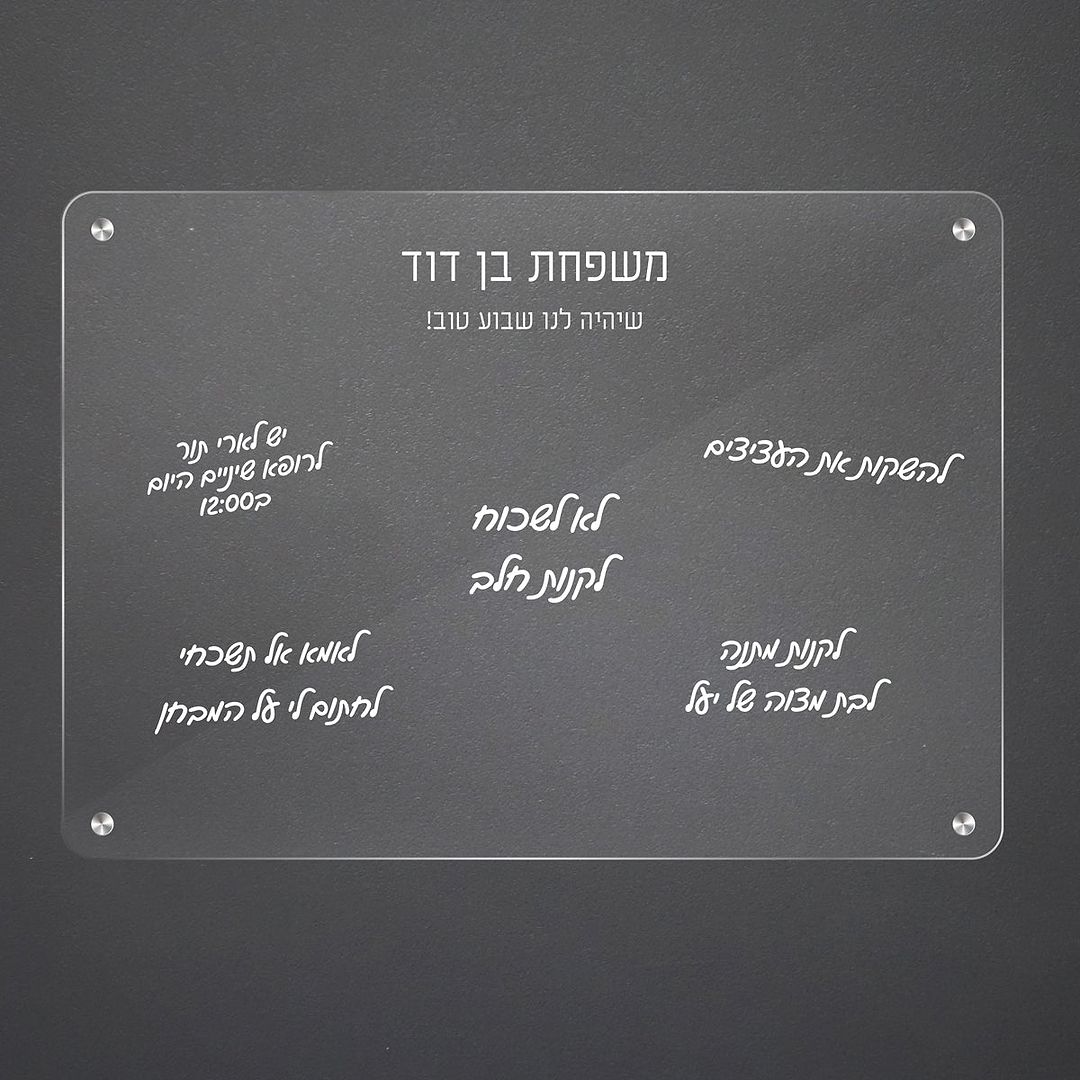 משפחת בן דוד
שיהיה לנו שבוע טוב!
להשקות את העציצים
יש לארי תור
לרופא שיניים היום
ב12:00
לא לשכוח
לקנות חלב
לקנות מתנה
לבת מצוה של יעל
לאמא אל תשכחי
לחתום לי על המבחן